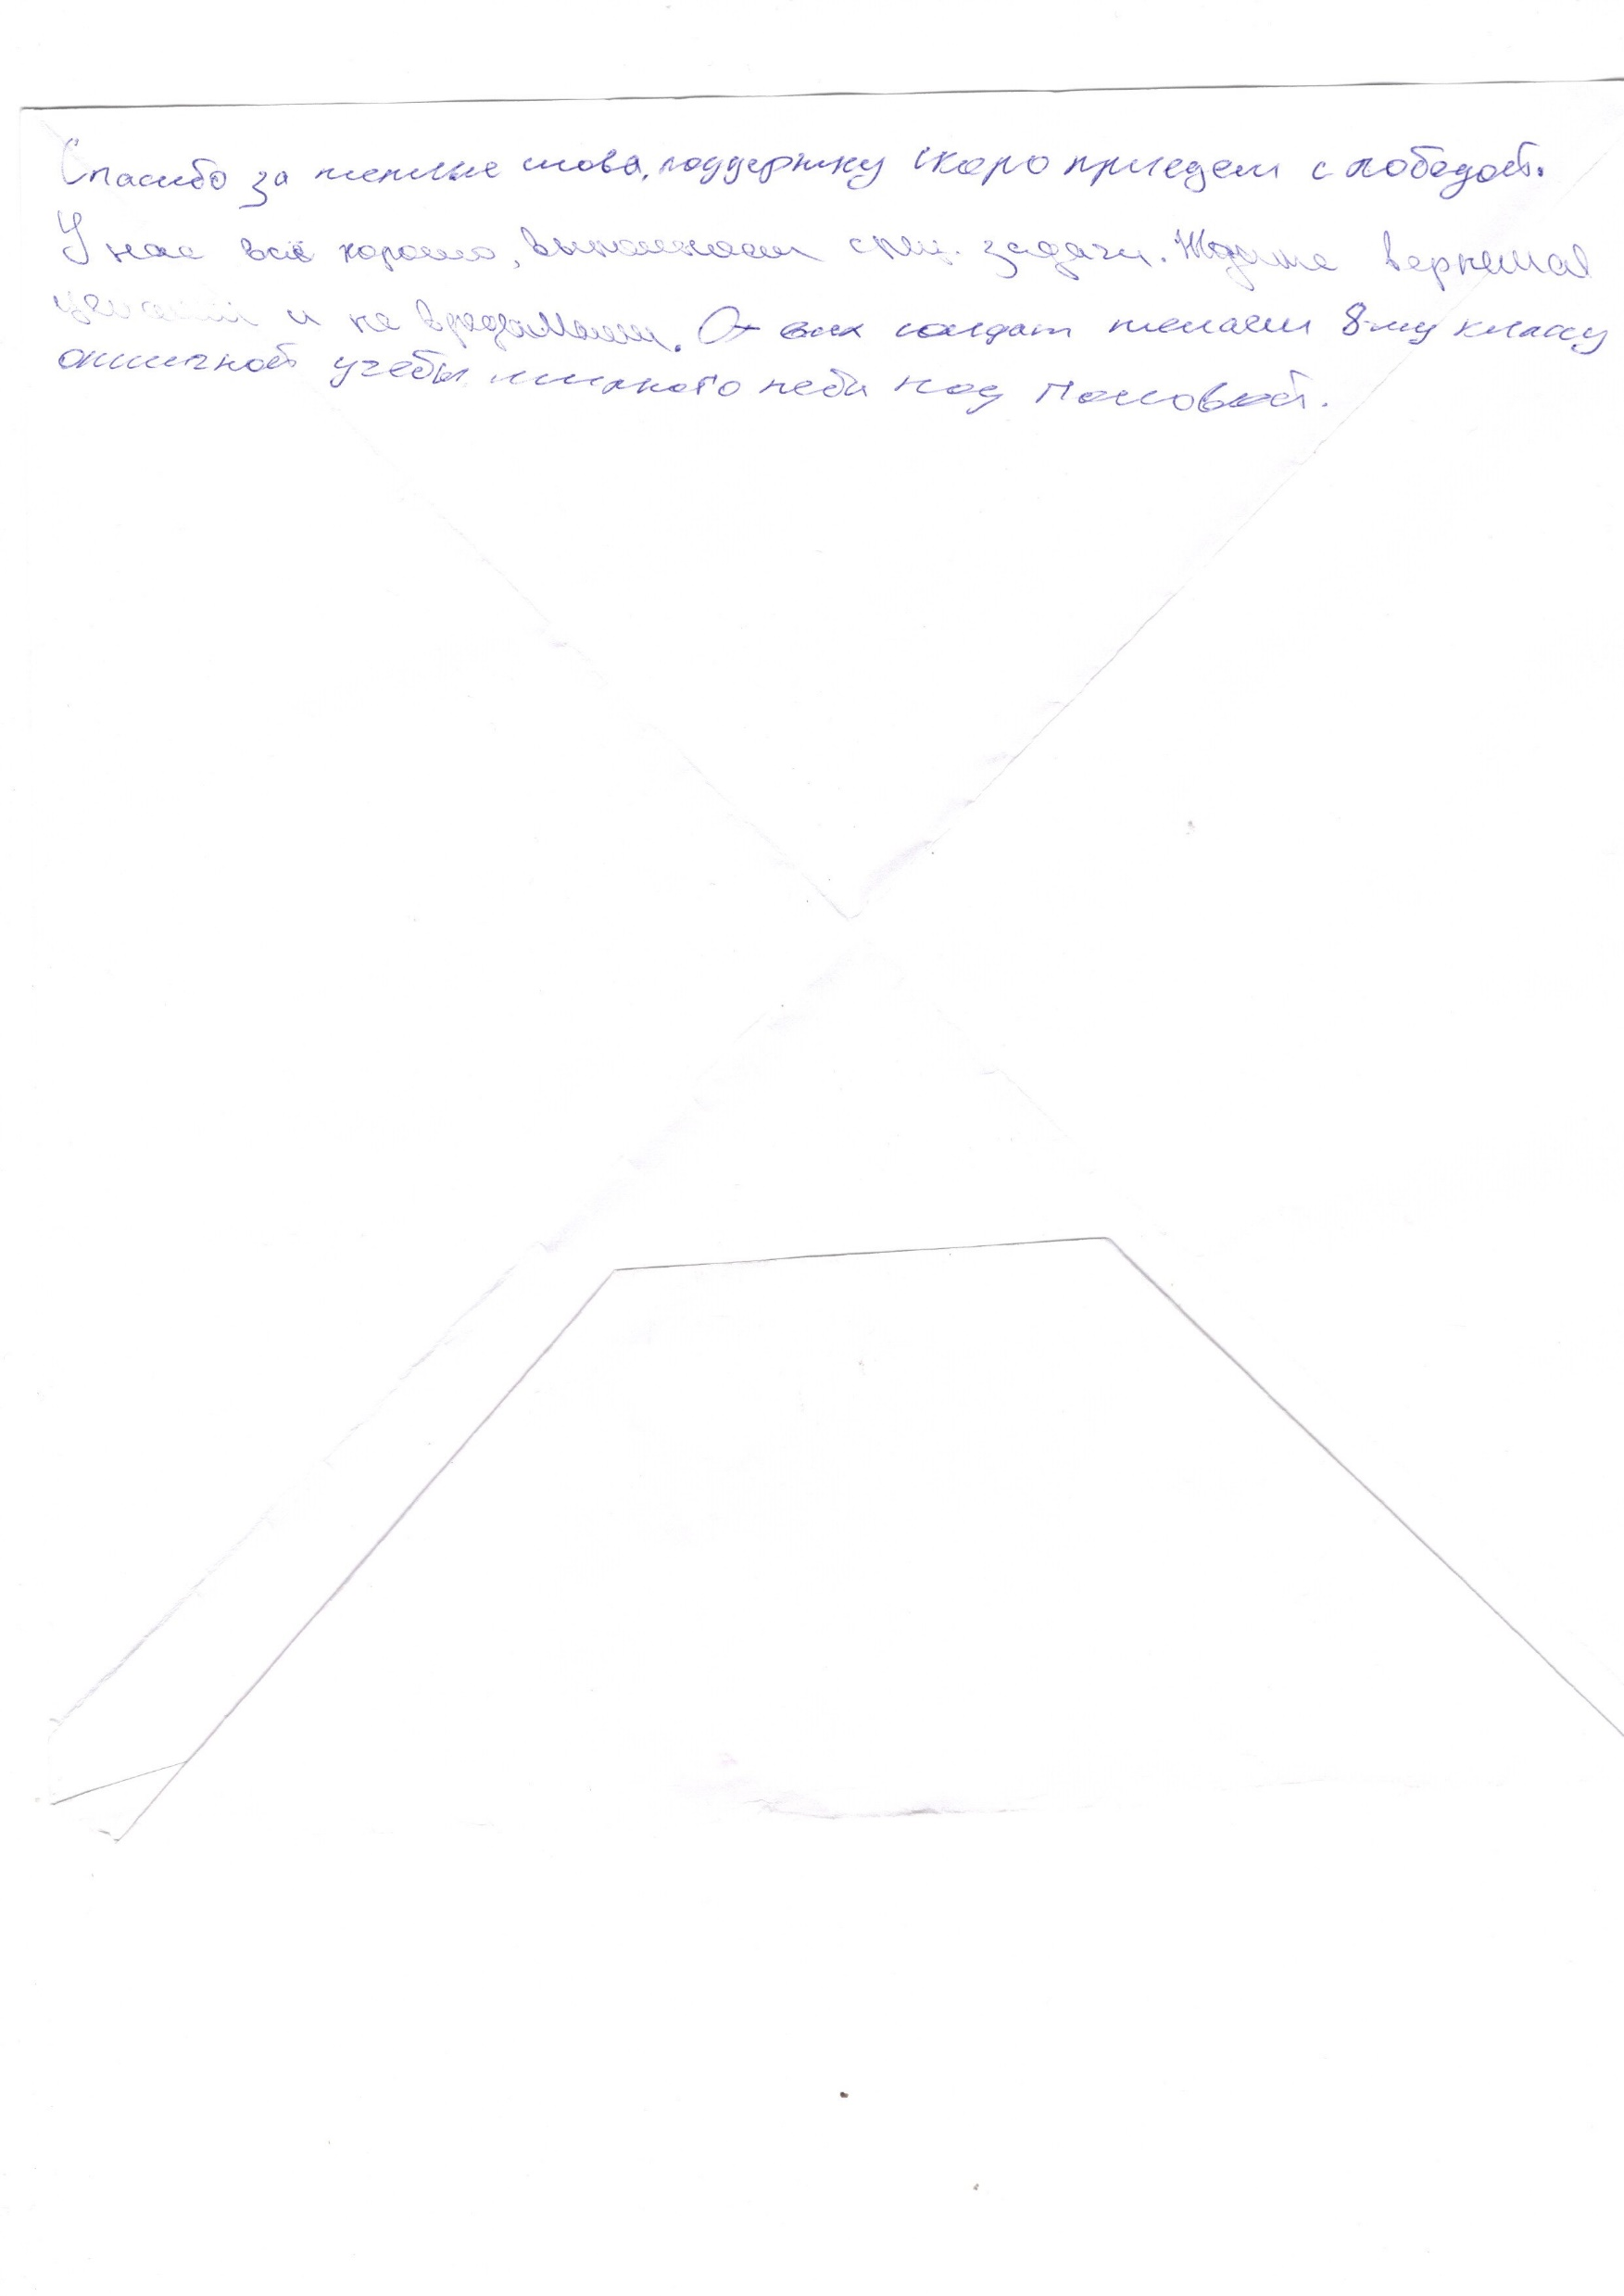 Спасибо за теплые слова, поддержку скоро приедем с победой.
У нас всё хорошо, выполняем спец. задачи. Ждите вернемся
целыми и не вредимыми. От всех солдат желаем 8-му классу
отличной учёбы мирного неба над